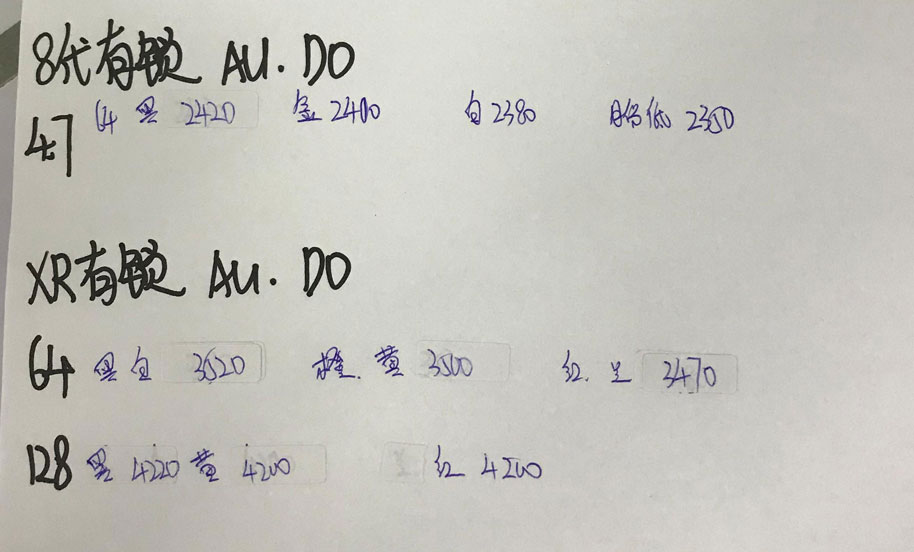 8代有锁 AU. DO
4.7 64 黑 2420 金 2400 白 2380 月份低 2350
XR有锁 AU. DO
64 黑白 3520 橙. 黄 3500 红. 兰 3470
128 黑 4220 黄 4200 红 4200